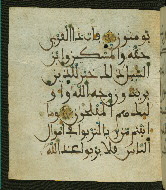 يومنون فات ذا القربى
حقه والمسكين وابن
السبيل ذلك خير للذين
يريدون وجه الله واو
ليك هم المفلحون وما
اتيتم من ربا ليربوا في اموال
الناس فلا يربوا عند الله